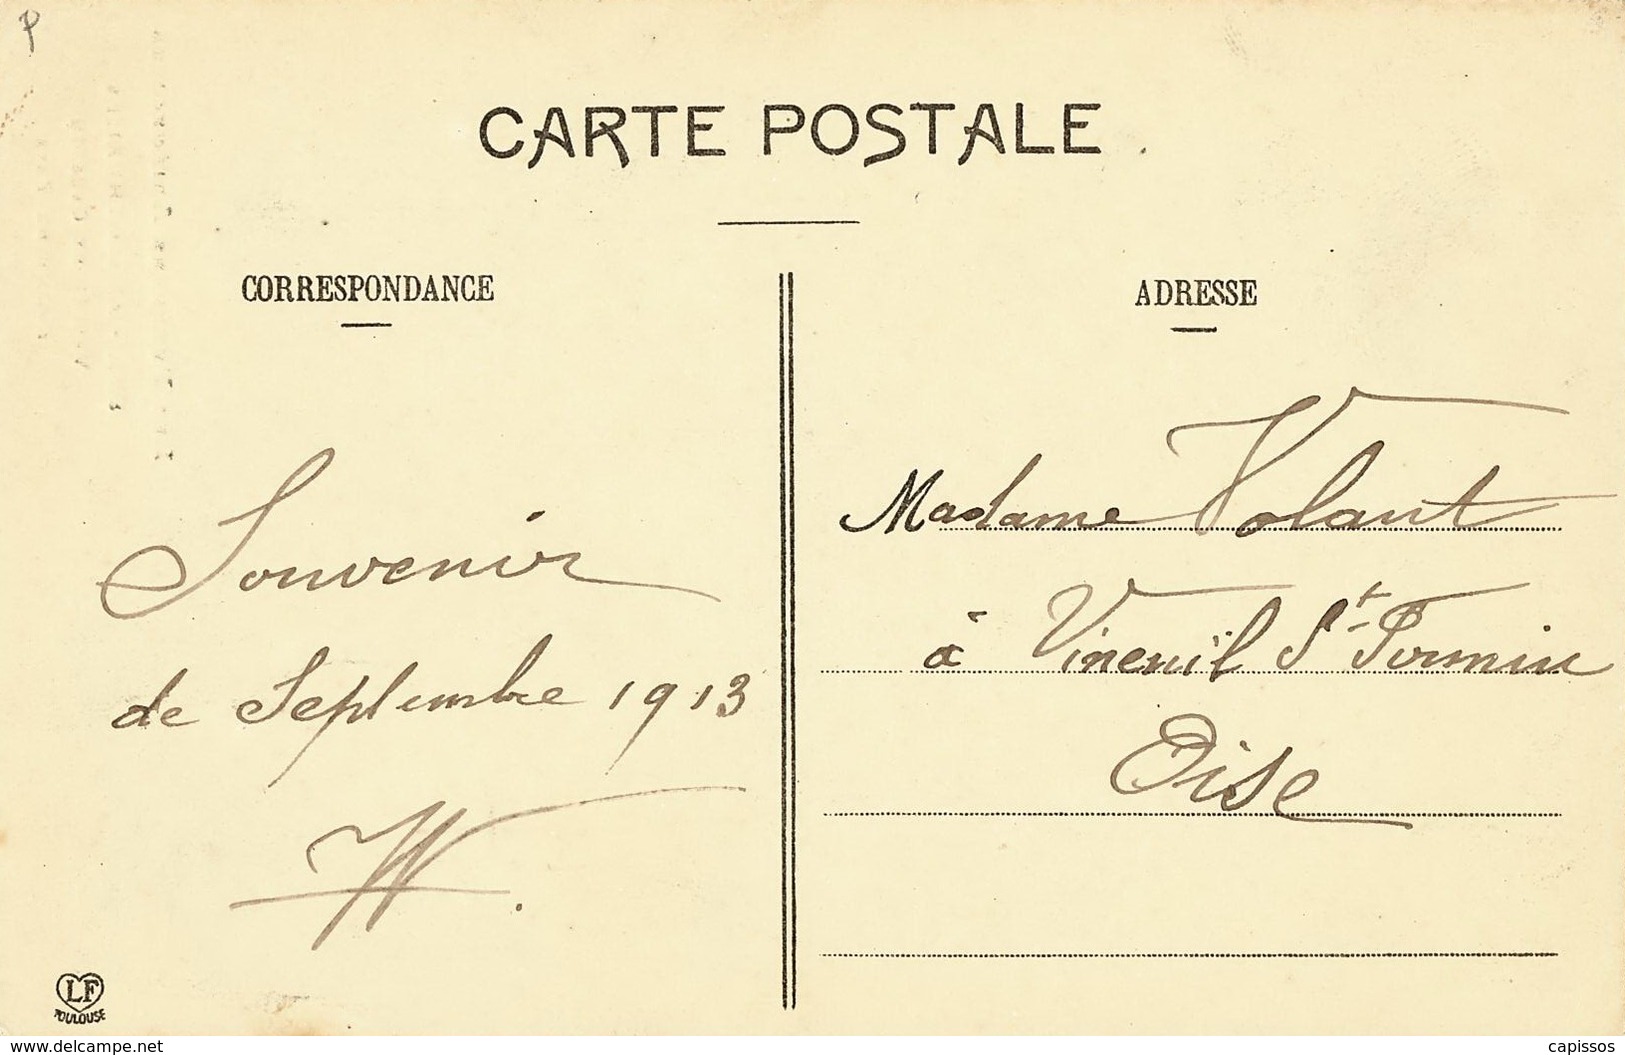 P
CARTE POSTALE
CORRESPONDANCE
Souvenir
de Septembre 1913
LF
TOULOUSE
ADRESSE
Madame Volant
à Vineuil St Firmin
Oise
www.delcampe.net
capissos